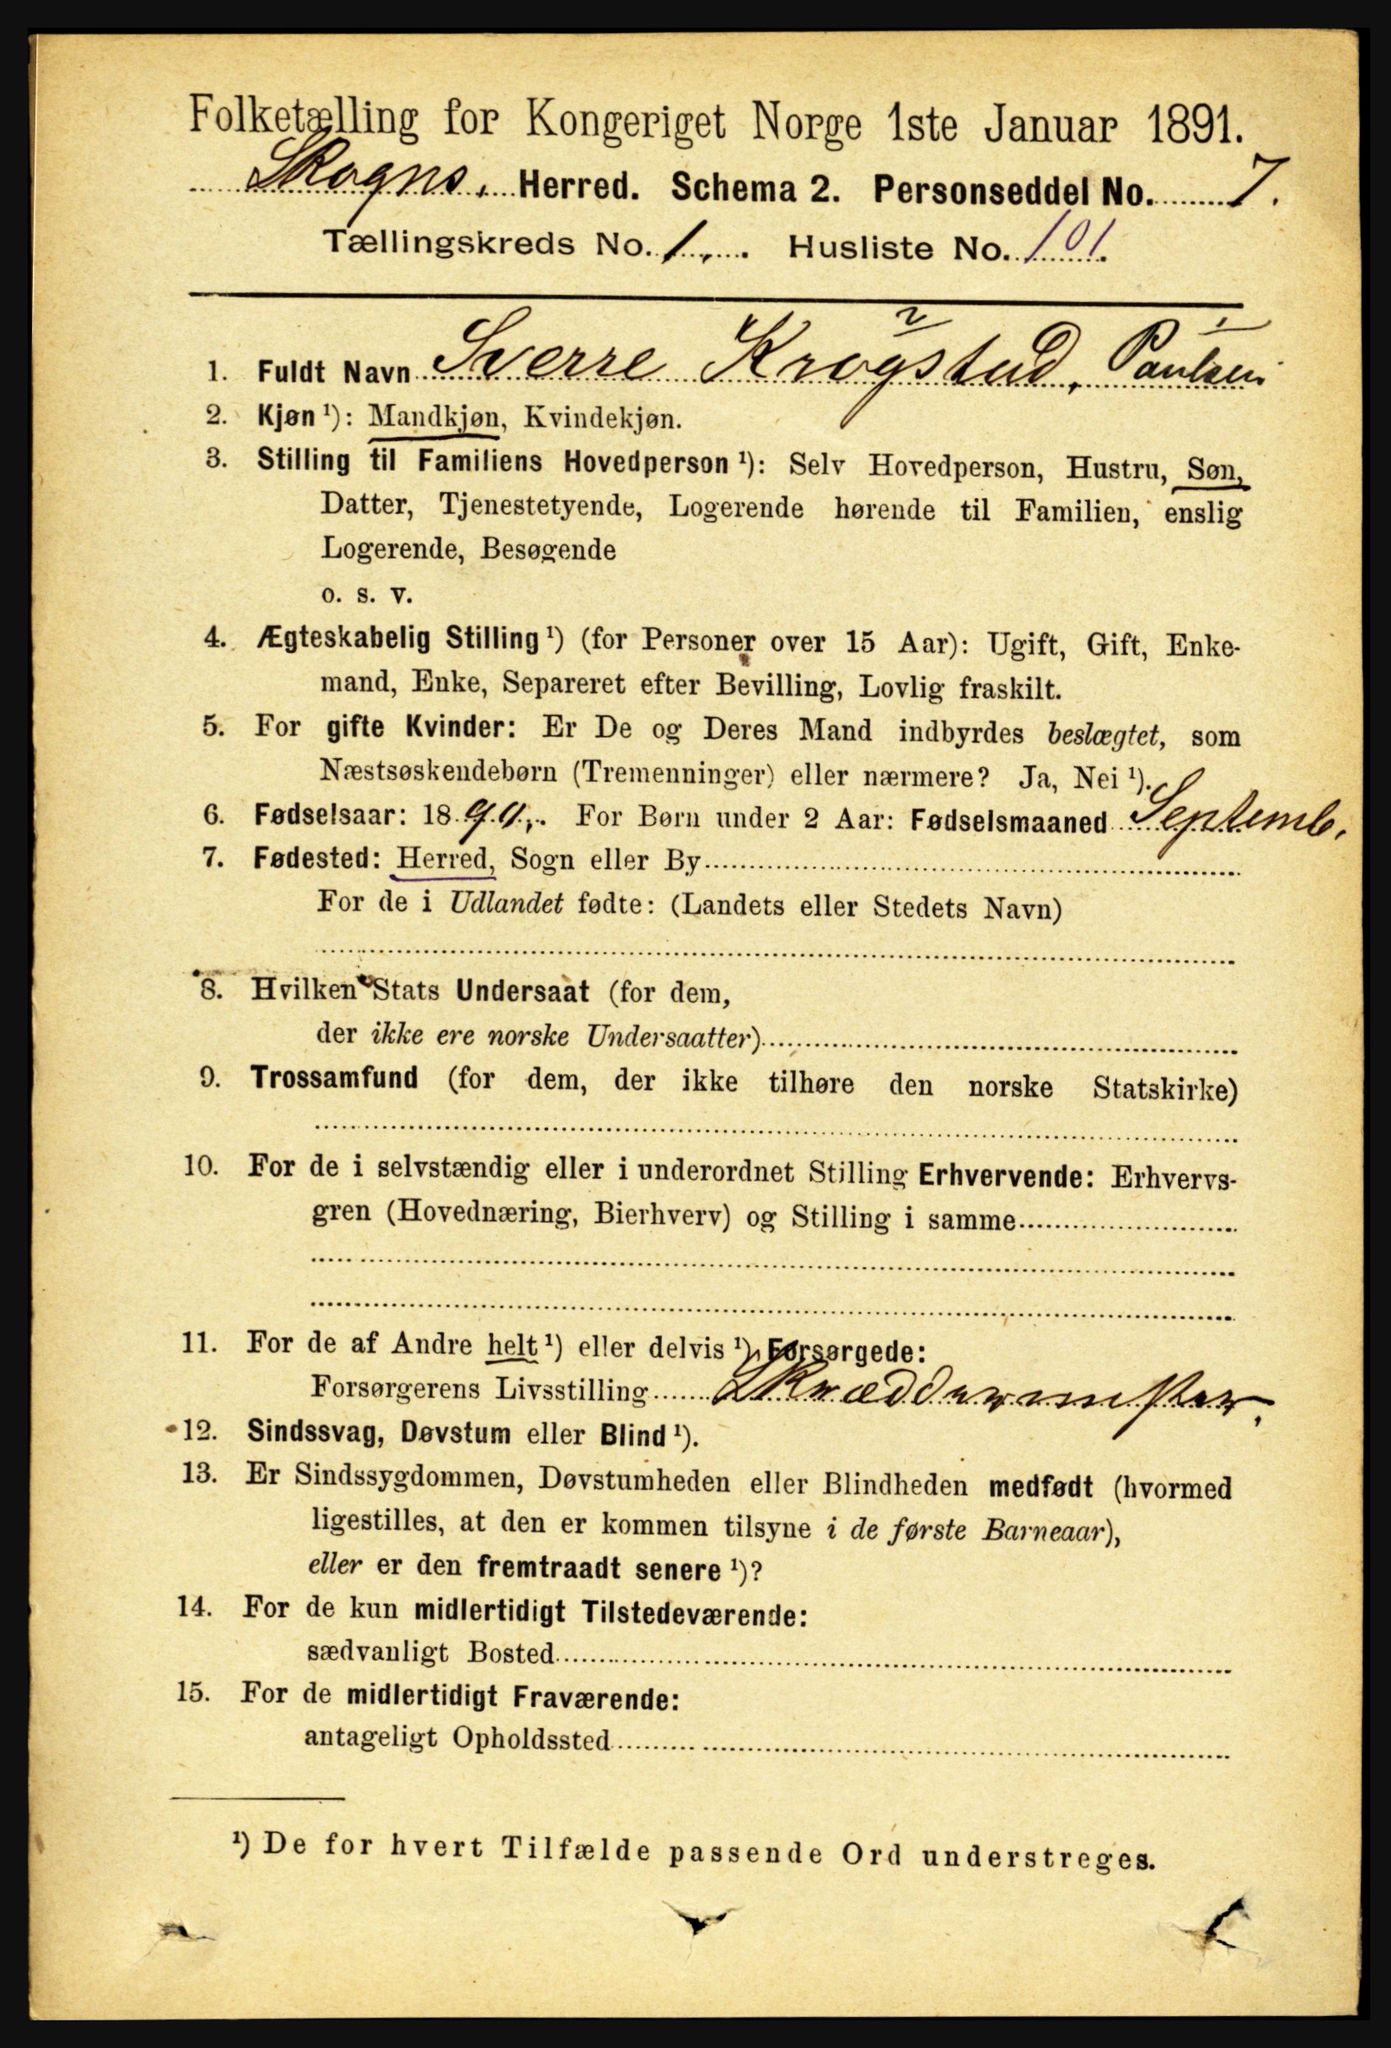 Folketælling for Kongeriget Norge 1ste Januar 1891.
Skogns. Herred. Schema 2. Personseddel No. 7.
Tællingskreds No. 1. Husliste No. 101.
1. Fuldt Navn Sverre Krogstad, Paulsen
2. Kjøn ¹): Mandkjøn, Kvindekjøn.
3. Stilling til Familiens Hovedperson ¹): Selv Hovedperson, Hustru, Søn,
Datter, Tjenestetyende, Logerende hørende til Familien, enslig
Logerende, Besøgende
o. s. v.
4. Ægteskabelig Stilling ¹) (for Personer over 15 Aar): Ugift, Gift, Enke-
mand, Enke, Separeret efter Bevilling, Lovlig fraskilt.
5. For gifte Kvinder: Er De og Deres Mand indbyrdes beslægtet, som
Næstsøskendebørn (Tremenninger) eller nærmere? Ja, Nei ¹).
6. Fødselsaar: 1890. For Børn under 2 Aar: Fødselsmaaned Septemb.
7. Fødested: Herred, Sogn eller By
For de i Udlandet fødte: (Landets eller Stedets Navn)
8. Hvilken Stats Undersaat (for dem,
der ikke ere norske Undersaatter)
9. Trossamfund (for dem, der ikke tilhøre den norske Statskirke)
10. For de i selvstændig eller i underordnet Stilling Erhvervende: Erhvervs-
gren (Hovednæring, Bierhverv) og Stilling i samme
11. For de af Andre helt ¹) eller delvis ¹) Forsørgede:
Forsørgerens Livsstilling Skræddermester.
12. Sindssvag, Døvstum eller Blind ¹).
13. Er Sindssygdommen, Døvstumheden eller Blindheden medfødt (hvormed
ligestilles, at den er kommen tilsyne i de første Barneaar),
eller er den fremtraadt senere ¹)?
14. For de kun midlertidigt Tilstedeværende:
sædvanligt Bosted
15. For de midlertidigt Fraværende:
antageligt Opholdssted
¹) De for hvert Tilfælde passende Ord understreges.